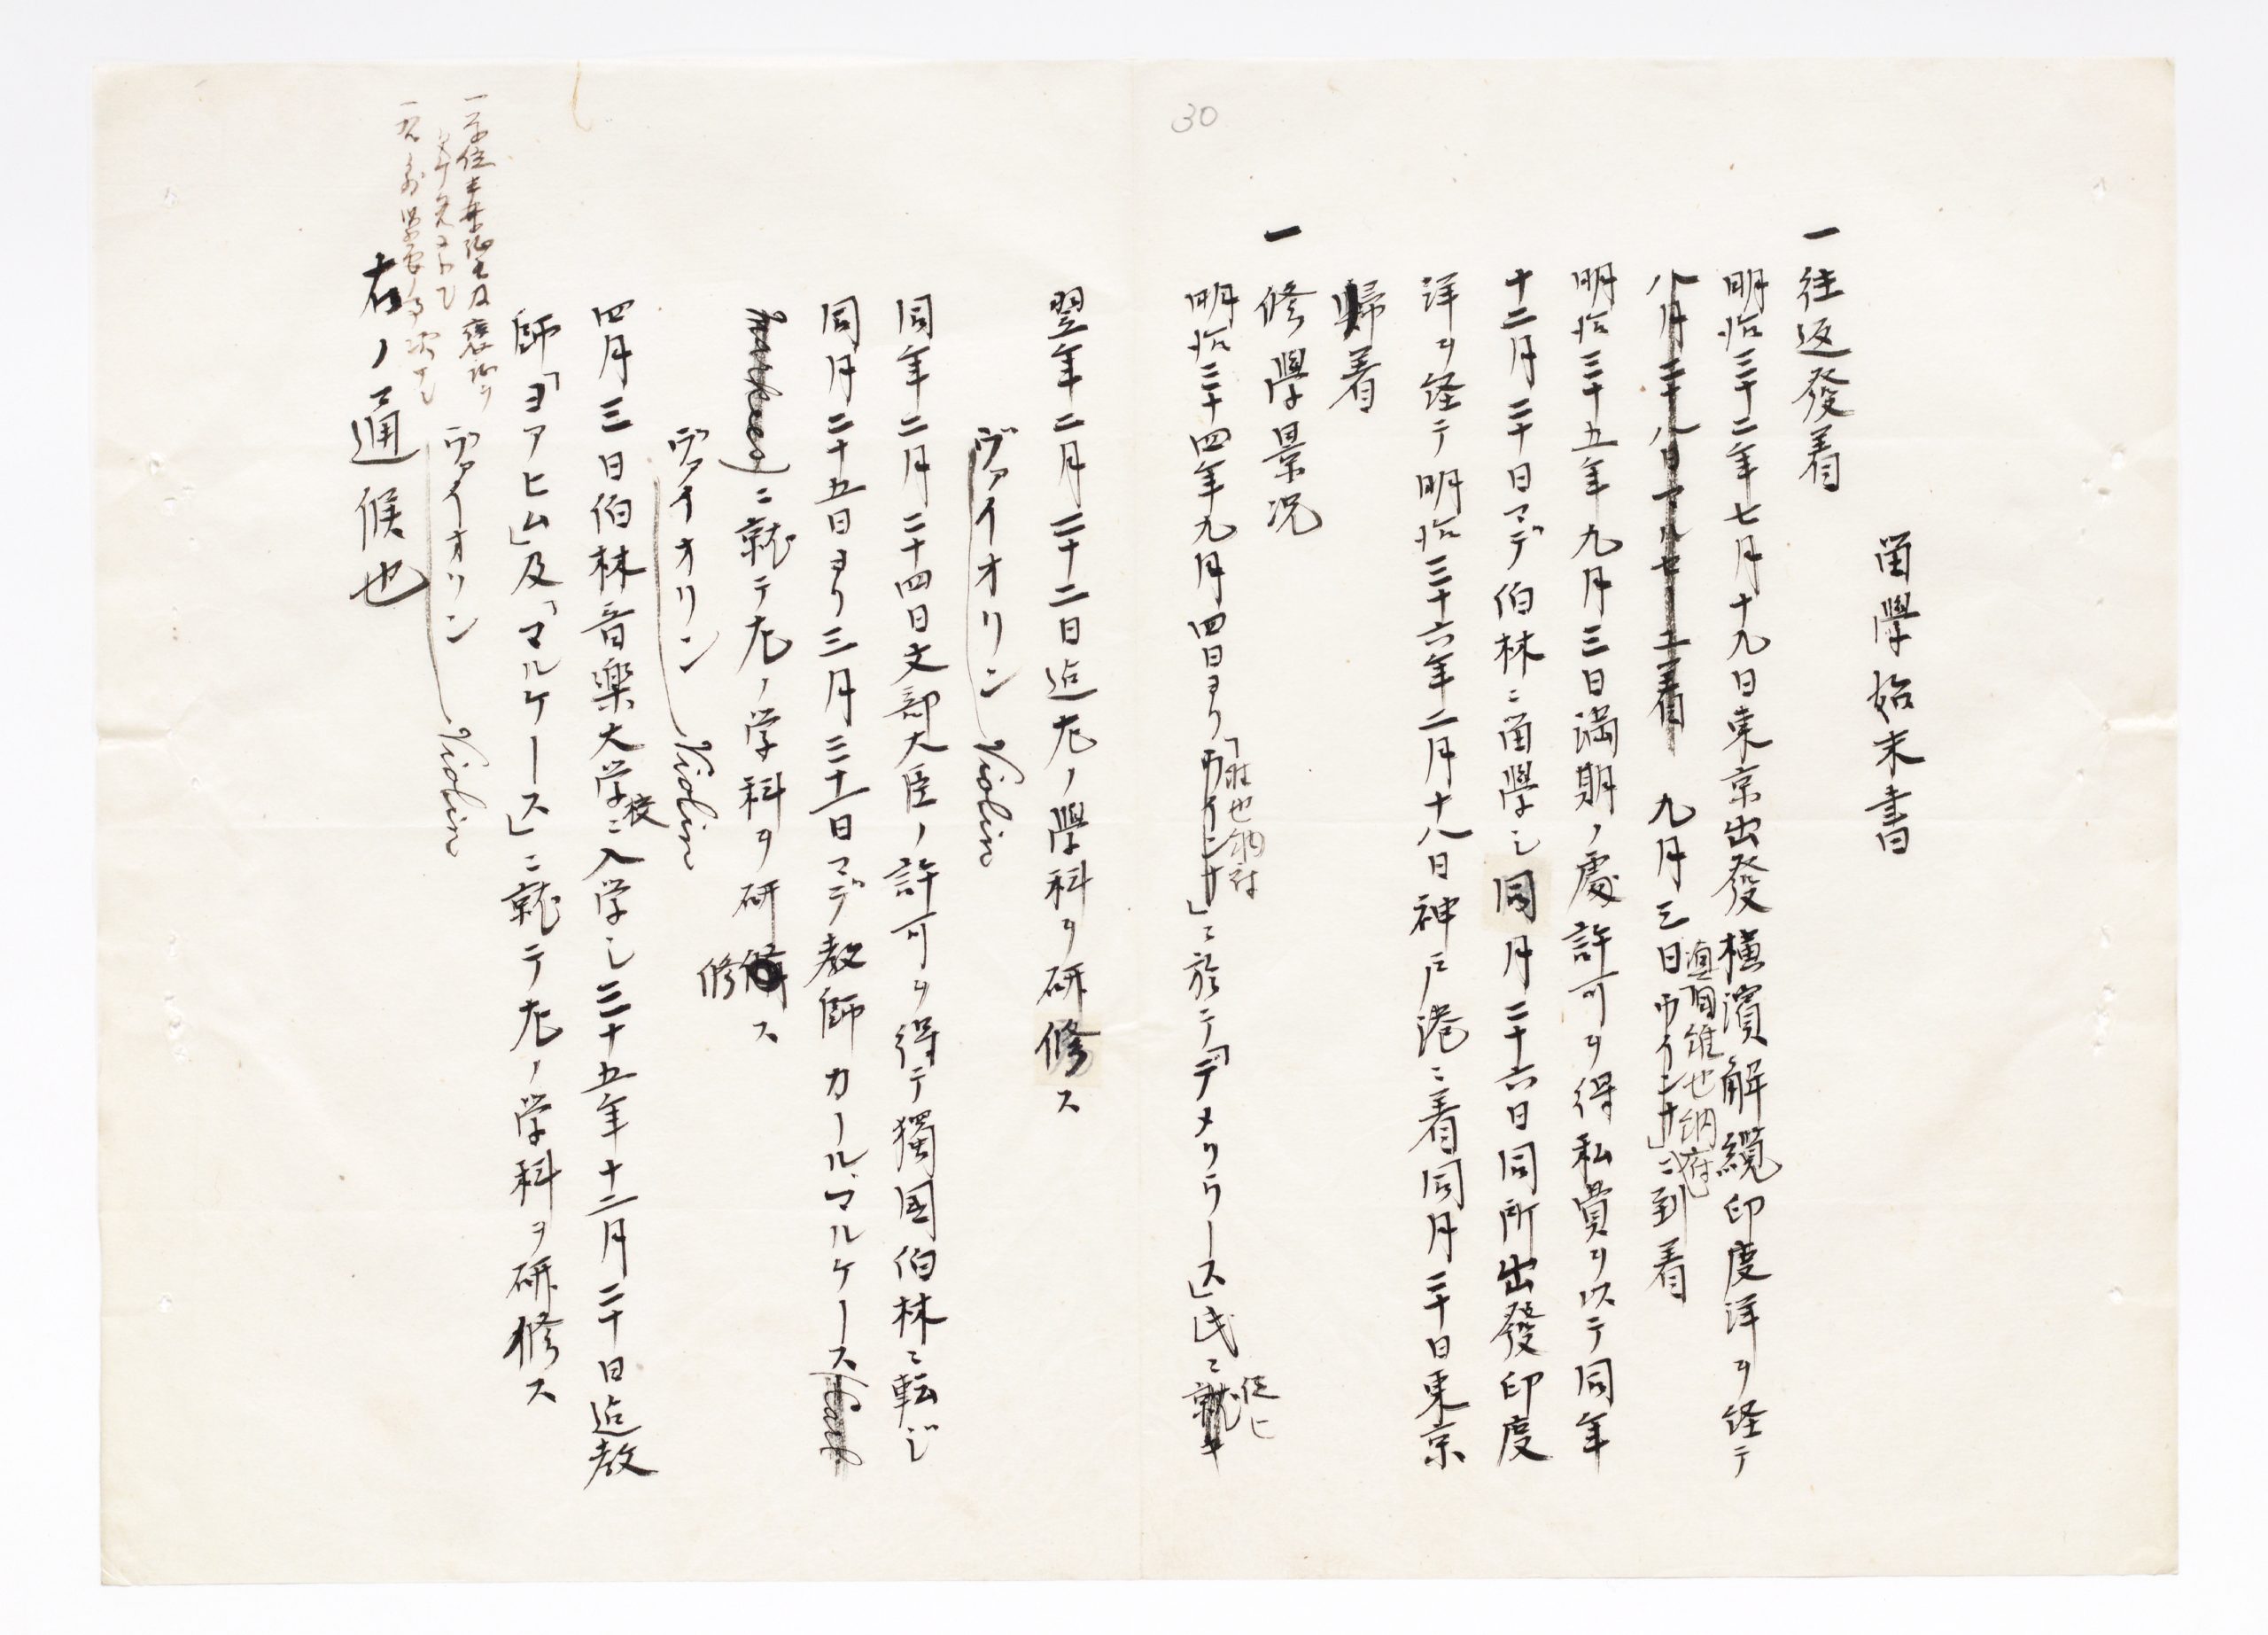 30
留學始末書
一 往返發着
明治三十二年七月十九日東京出發橫濱解纜印度洋ヲ経テ
八月二十八日マルセーユ着 九月三日ウインナ」ニ到着
直ニ維也納府
明治三十五年九月三日満期ノ處許可ヲ得私費ヲ以テ同年
十二月二十日マデ伯林ニ留學シ同月二十六日同所出發印度
洋ヲ経テ明治三十六年二月十八日神戸港ニ着同月二十日東京
歸着
一 修學景况
明治三十四年九月四日ヨリ「ウインナ」ニ於テ「デメクリース」氏ニ就キ
維也納府
従ヒ
翌年二月二十二日迠左ノ學科ヲ研修ス
ヴァイオリン Violin
同年二月二十四日文部大臣ノ許可ヲ得テ獨国伯林ニ転ジ
同月二十五日ヨリ三月三十一日マデ教師カール、マルケース
Markees)ニ就テ左ノ学科ヲ研ス
修
ヴァイオリン Violin
四月三日伯林音楽大学ニ入学シ三十五年十二月二十日迠教
校
師「ヨアヒム」及「マルケース」ニ就テ左ノ学科ヲ研修ス
ヴァイオリン Violin
右ノ通候也